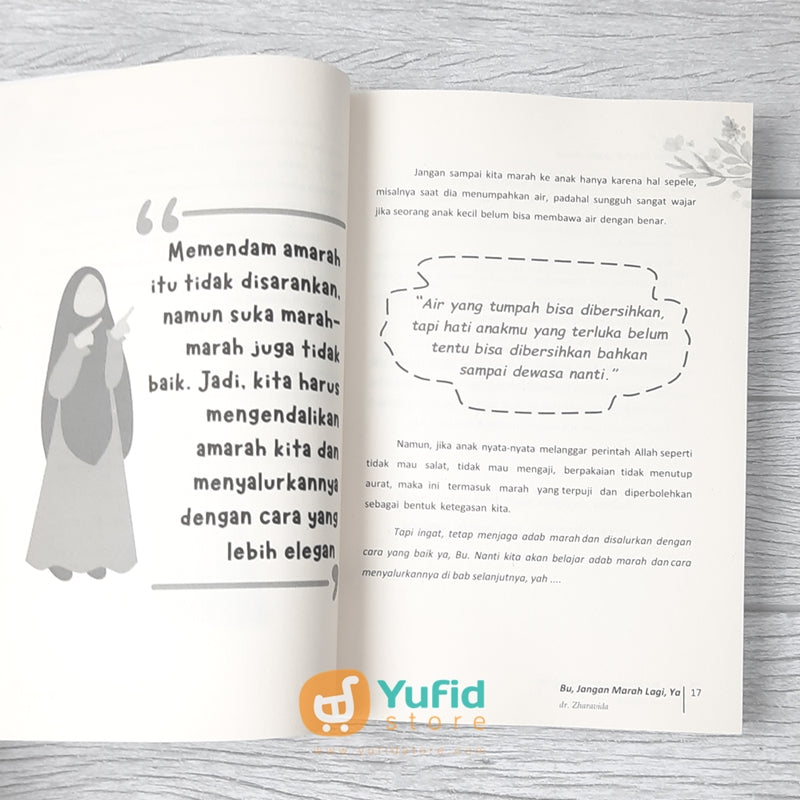 Memendam amarah
itu tidak disarankan,
namun suka marah-
marah juga tidak
baik. Jadi, kita harus
mengendalikan
amarah kita dan
menyalurkannya
dengan cara yang
lebih elegan
Jangan sampai kita marah ke anak hanya karena hal sepele,
misalnya saat dia menumpahkan air, padahal sungguh sangat wajar
jika seorang anak kecil belum bisa membawa air dengan benar.
"Air yang tumpah bisa dibersihkan,
tapi hati anakmu yang terluka belum
tentu bisa dibersihkan bahkan
sampai dewasa nanti."
Namun, jika anak nyata-nyata melanggar perintah Allah seperti
tidak mau salat, tidak mau mengaji, berpakaian tidak menutup
aurat, maka ini termasuk marah yang terpuji dan diperbolehkan
sebagai bentuk ketegasan kita.
Tapi ingat, tetap menjaga adab marah dan disalurkan dengan
cara yang baik ya, Bu. Nanti kita akan belajar adab marah dan cara
menyalurkannya di bab selanjutnya, yah ....
Bu, Jangan Marah Lagi, Ya 17
dr. Zharavida
Yufid
store
www.yufidstore.com